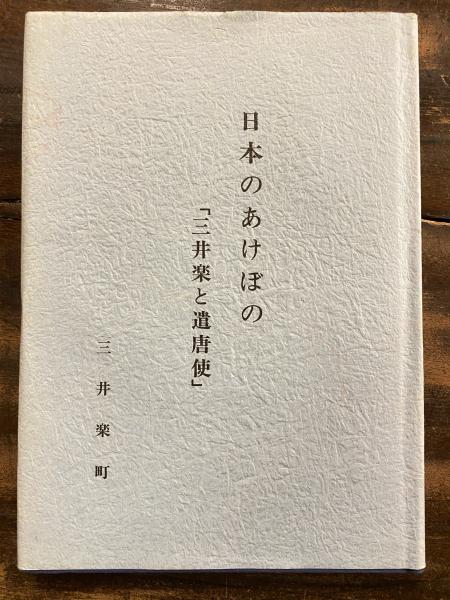 日本のあけぼの
「三井楽と遣唐使」
三井楽町